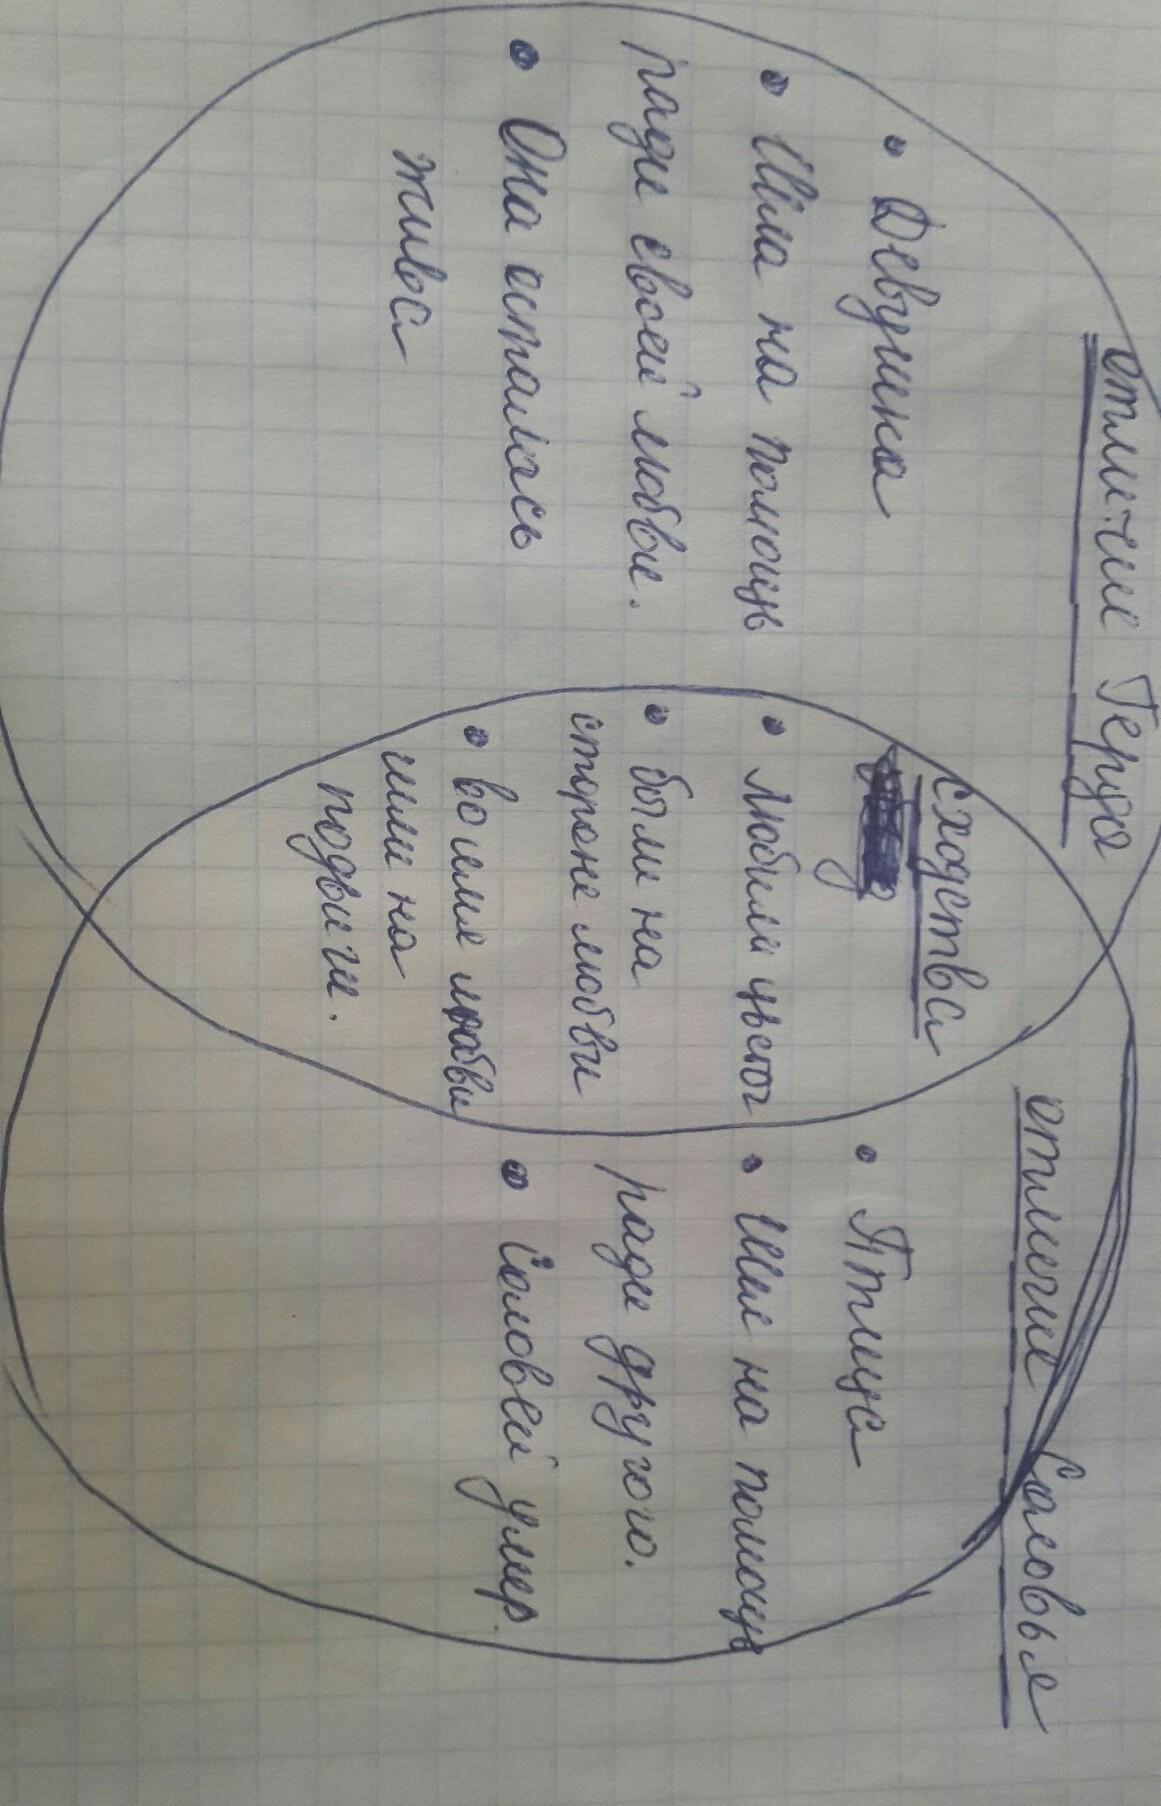 отличие Герда
• Девушка
• Шла на помощь
ради своей любви.
• Она осталась
жива
сходства
• любили цветы
• были на
стороне любви
• во имя любви
шли на
подвиги.
отличие Соловья
• Птица
• Шёл на помощь
ради другого.
• Соловей умер.